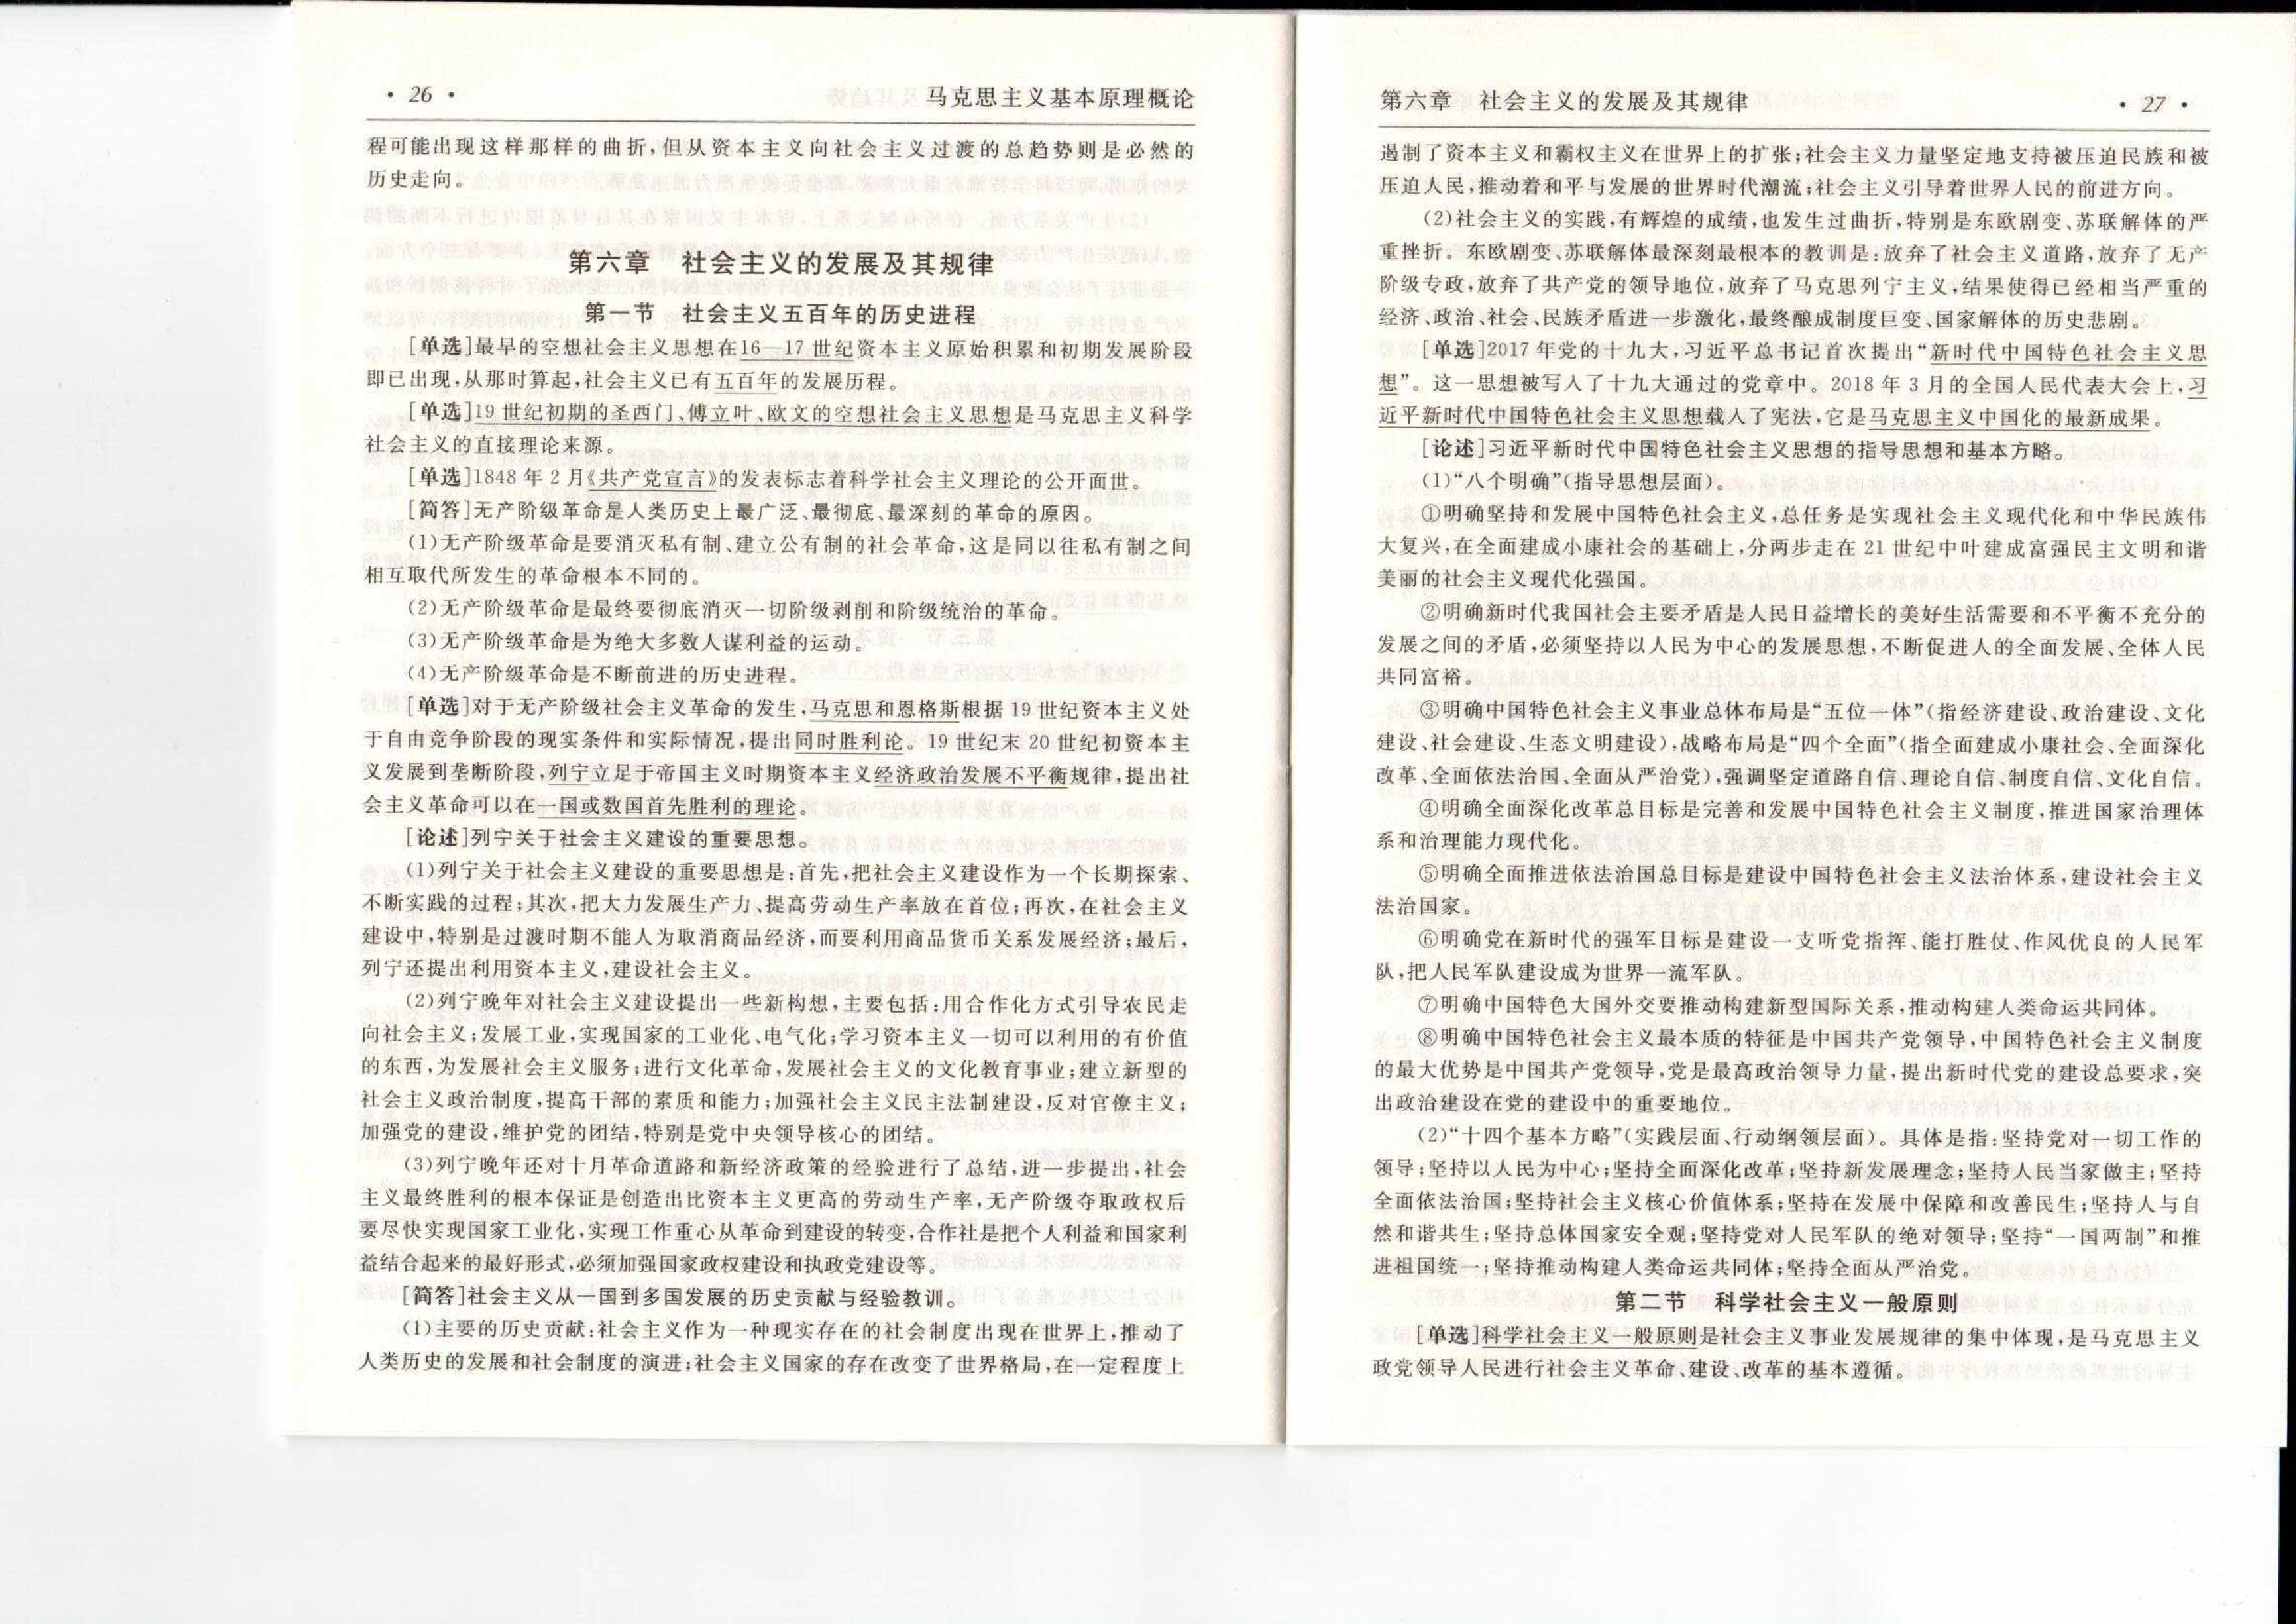 • 26 •
马克思主义基本原理概论
程可能出现这样那样的曲折,但从资本主义向社会主义过渡的总趋势则是必然的
历史走向。
第六章 社会主义的发展及其规律
第一节 社会主义五百年的历史进程
[单选]最早的空想社会主义思想在16—17世纪资本主义原始积累和初期发展阶段
即已出现,从那时算起,社会主义已有五百年的发展历程。
[单选]19世纪初期的圣西门、傅立叶、欧文的空想社会主义思想是马克思主义科学
社会主义的直接理论来源。
[单选]1848年2月《共产党宣言》的发表标志着科学社会主义理论的公开面世。
[简答]无产阶级革命是人类历史上最广泛、最彻底、最深刻的革命的原因。
(1)无产阶级革命是要消灭私有制、建立公有制的社会革命,这是同以往私有制之间
相互取代所发生的革命根本不同的。
(2)无产阶级革命是最终要彻底消灭一切阶级剥削和阶级统治的革命。
(3)无产阶级革命是为绝大多数人谋利益的运动。
(4)无产阶级革命是不断前进的历史进程。
[单选]对于无产阶级社会主义革命的发生,马克思和恩格斯根据19世纪资本主义处
于自由竞争阶段的现实条件和实际情况,提出同时胜利论。19世纪末20世纪初资本主
义发展到垄断阶段,列宁立足于帝国主义时期资本主义经济政治发展不平衡规律,提出社
会主义革命可以在一国或数国首先胜利的理论。
[论述]列宁关于社会主义建设的重要思想。
(1)列宁关于社会主义建设的重要思想是:首先,把社会主义建设作为一个长期探索、
不断实践的过程;其次,把大力发展生产力、提高劳动生产率放在首位;再次,在社会主义
建设中,特别是过渡时期不能人为取消商品经济,而要利用商品货币关系发展经济;最后,
列宁还提出利用资本主义,建设社会主义。
(2)列宁晚年对社会主义建设提出一些新构想,主要包括:用合作化方式引导农民走
向社会主义;发展工业,实现国家的工业化、电气化;学习资本主义一切可以利用的有价值
的东西,为发展社会主义服务;进行文化革命,发展社会主义的文化教育事业;建立新型的
社会主义政治制度,提高干部的素质和能力;加强社会主义民主法制建设,反对官僚主义;
加强党的建设,维护党的团结,特别是党中央领导核心的团结。
(3)列宁晚年还对十月革命道路和新经济政策的经验进行了总结,进一步提出,社会
主义最终胜利的根本保证是创造出比资本主义更高的劳动生产率,无产阶级夺取政权后
要尽快实现国家工业化,实现工作重心从革命到建设的转变,合作社是把个人利益和国家利
益结合起来的最好形式,必须加强国家政权建设和执政党建设等。
[简答]社会主义从一国到多国发展的历史贡献与经验教训。
(1)主要的历史贡献:社会主义作为一种现实存在的社会制度出现在世界上,推动了
人类历史的发展和社会制度的演进;社会主义国家的存在改变了世界格局,在一定程度上
第六章 社会主义的发展及其规律
• 27 •
遏制了资本主义和霸权主义在世界上的扩张;社会主义力量坚定地支持被压迫民族和被
压迫人民,推动着和平与发展的世界时代潮流;社会主义引导着世界人民的前进方向。
(2)社会主义的实践,有辉煌的成绩,也发生过曲折,特别是东欧剧变、苏联解体的严
重挫折。东欧剧变、苏联解体最深刻最根本的教训是:放弃了社会主义道路,放弃了无产
阶级专政,放弃了共产党的领导地位,放弃了马克思列宁主义,结果使得已经相当严重的
经济、政治、社会、民族矛盾进一步激化,最终酿成制度巨变、国家解体的历史悲剧。
[单选]2017年党的十九大,习近平总书记首次提出“新时代中国特色社会主义思
想”。这一思想被写入了十九大通过的党章中。2018年3月的全国人民代表大会上,习
近平新时代中国特色社会主义思想载入了宪法,它是马克思主义中国化的最新成果。
[论述]习近平新时代中国特色社会主义思想的指导思想和基本方略。
(1)“八个明确”(指导思想层面)。
①明确坚持和发展中国特色社会主义,总任务是实现社会主义现代化和中华民族伟
大复兴,在全面建成小康社会的基础上,分两步走在21世纪中叶建成富强民主文明和谐
美丽的社会主义现代化强国。
②明确新时代我国社会主要矛盾是人民日益增长的美好生活需要和不平衡不充分的
发展之间的矛盾,必须坚持以人民为中心的发展思想,不断促进人的全面发展、全体人民
共同富裕。
③明确中国特色社会主义事业总体布局是“五位一体”(指经济建设、政治建设、文化
建设、社会建设、生态文明建设),战略布局是“四个全面”(指全面建成小康社会、全面深化
改革、全面依法治国、全面从严治党),强调坚定道路自信、理论自信、制度自信、文化自信。
④明确全面深化改革总目标是完善和发展中国特色社会主义制度,推进国家治理体
系和治理能力现代化。
⑤明确全面推进依法治国总目标是建设中国特色社会主义法治体系,建设社会主义
法治国家。
⑥明确党在新时代的强军目标是建设一支听党指挥、能打胜仗、作风优良的人民军
队,把人民军队建设成为世界一流军队。
⑦明确中国特色大国外交要推动构建新型国际关系,推动构建人类命运共同体。
⑧明确中国特色社会主义最本质的特征是中国共产党领导,中国特色社会主义制度
的最大优势是中国共产党领导,党是最高政治领导力量,提出新时代党的建设总要求,突
出政治建设在党的建设中的重要地位。
(2)“十四个基本方略”(实践层面、行动纲领层面)。具体是指:坚持党对一切工作的
领导;坚持以人民为中心;坚持全面深化改革;坚持新发展理念;坚持人民当家做主;坚持
全面依法治国;坚持社会主义核心价值体系;坚持在发展中保障和改善民生;坚持人与自
然和谐共生;坚持总体国家安全观;坚持党对人民军队的绝对领导;坚持“一国两制”和推
进祖国统一;坚持推动构建人类命运共同体;坚持全面从严治党。
第二节 科学社会主义一般原则
[单选]科学社会主义一般原则是社会主义事业发展规律的集中体现,是马克思主义
政党领导人民进行社会主义革命、建设、改革的基本遵循。